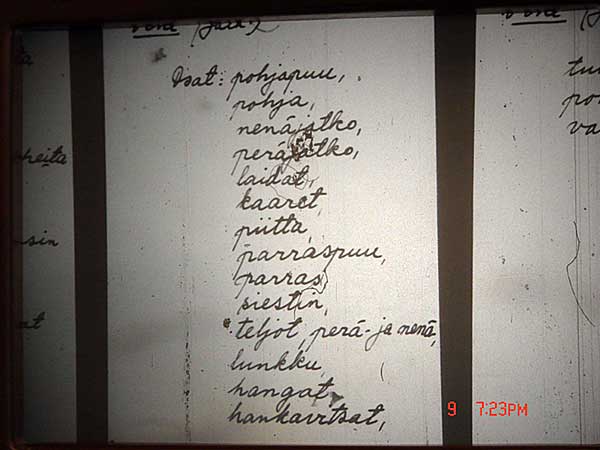 vene (jatk.)
Osat: pohjapuu,
pohja,
nenäjatko,
peräjatko,
laidat,
kaaret,
piitta,
parraspuu,
parras,
siestin,
teljot, perä- ja nenä,
lunkku,
hangat,
hankavitsat,
vene
heita
sin
at
tu
po
va
9 7:23PM